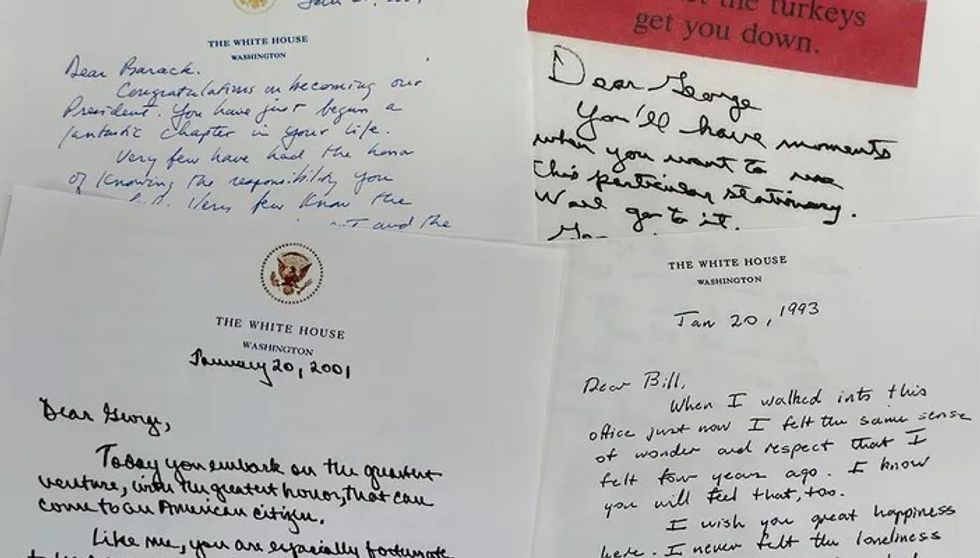 THE WHITE HOUSE
WASHINGTON
Dear Barack.
Congratulations on becoming our
President. You have just begun a
fantastic chapter in your life.
Very few have had the honor
of knowing the responsibility you
Very few know the
and the
the turkeys
get you down.
Dear George
You'll have moments
when you want to use
this particular stationary.
Well go to it.
THE WHITE HOUSE
WASHINGTON
January 20, 2001
Dear George,
Today you embark on the greatest
venture, with the greatest honor, that can
come to an American citizen.
Like me, you are especially fortunate
THE WHITE HOUSE
WASHINGTON
Jan 20, 1993
Dear Bill,
When I walked into this
office just now I felt the same sense
of wonder and respect that I
felt four years ago. I know
you will feel that, too.
I wish you great happiness
here. I never felt the loneliness